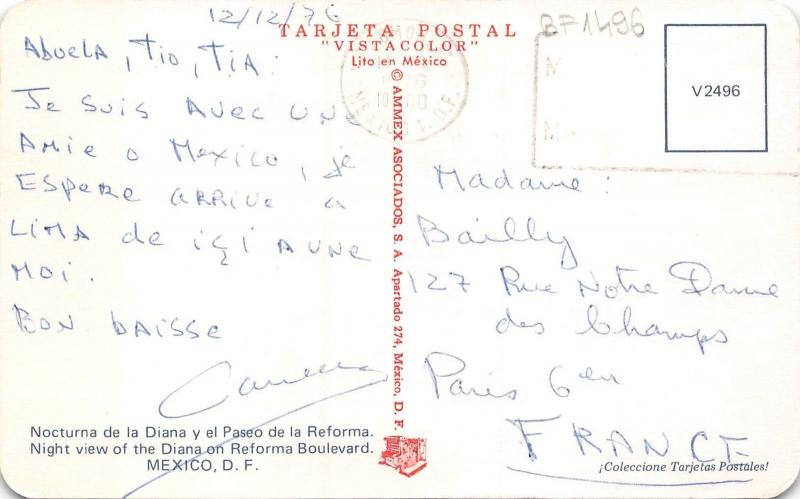 12/12/76
TARJETA POSTAL
"VISTACOLOR"
Lito en México
© AMMEX ASOCIADOS, S. A. Apartado 274, México, D. F.
BF1496
V2496
MEXICO 1, D.F.
Abuela, Tio, Tia:
Je suis avec une
amie o Mexico, je
espere arrive a
Lima de içi a une
moi.
Bon baisse
Madame:
Bailly
127 Rue Notre Dame
des Champs
Paris 6em
FRANCE
Nocturna de la Diana y el Paseo de la Reforma.
Night view of the Diana on Reforma Boulevard.
MEXICO, D. F.
¡Coleccione Tarjetas Postales!